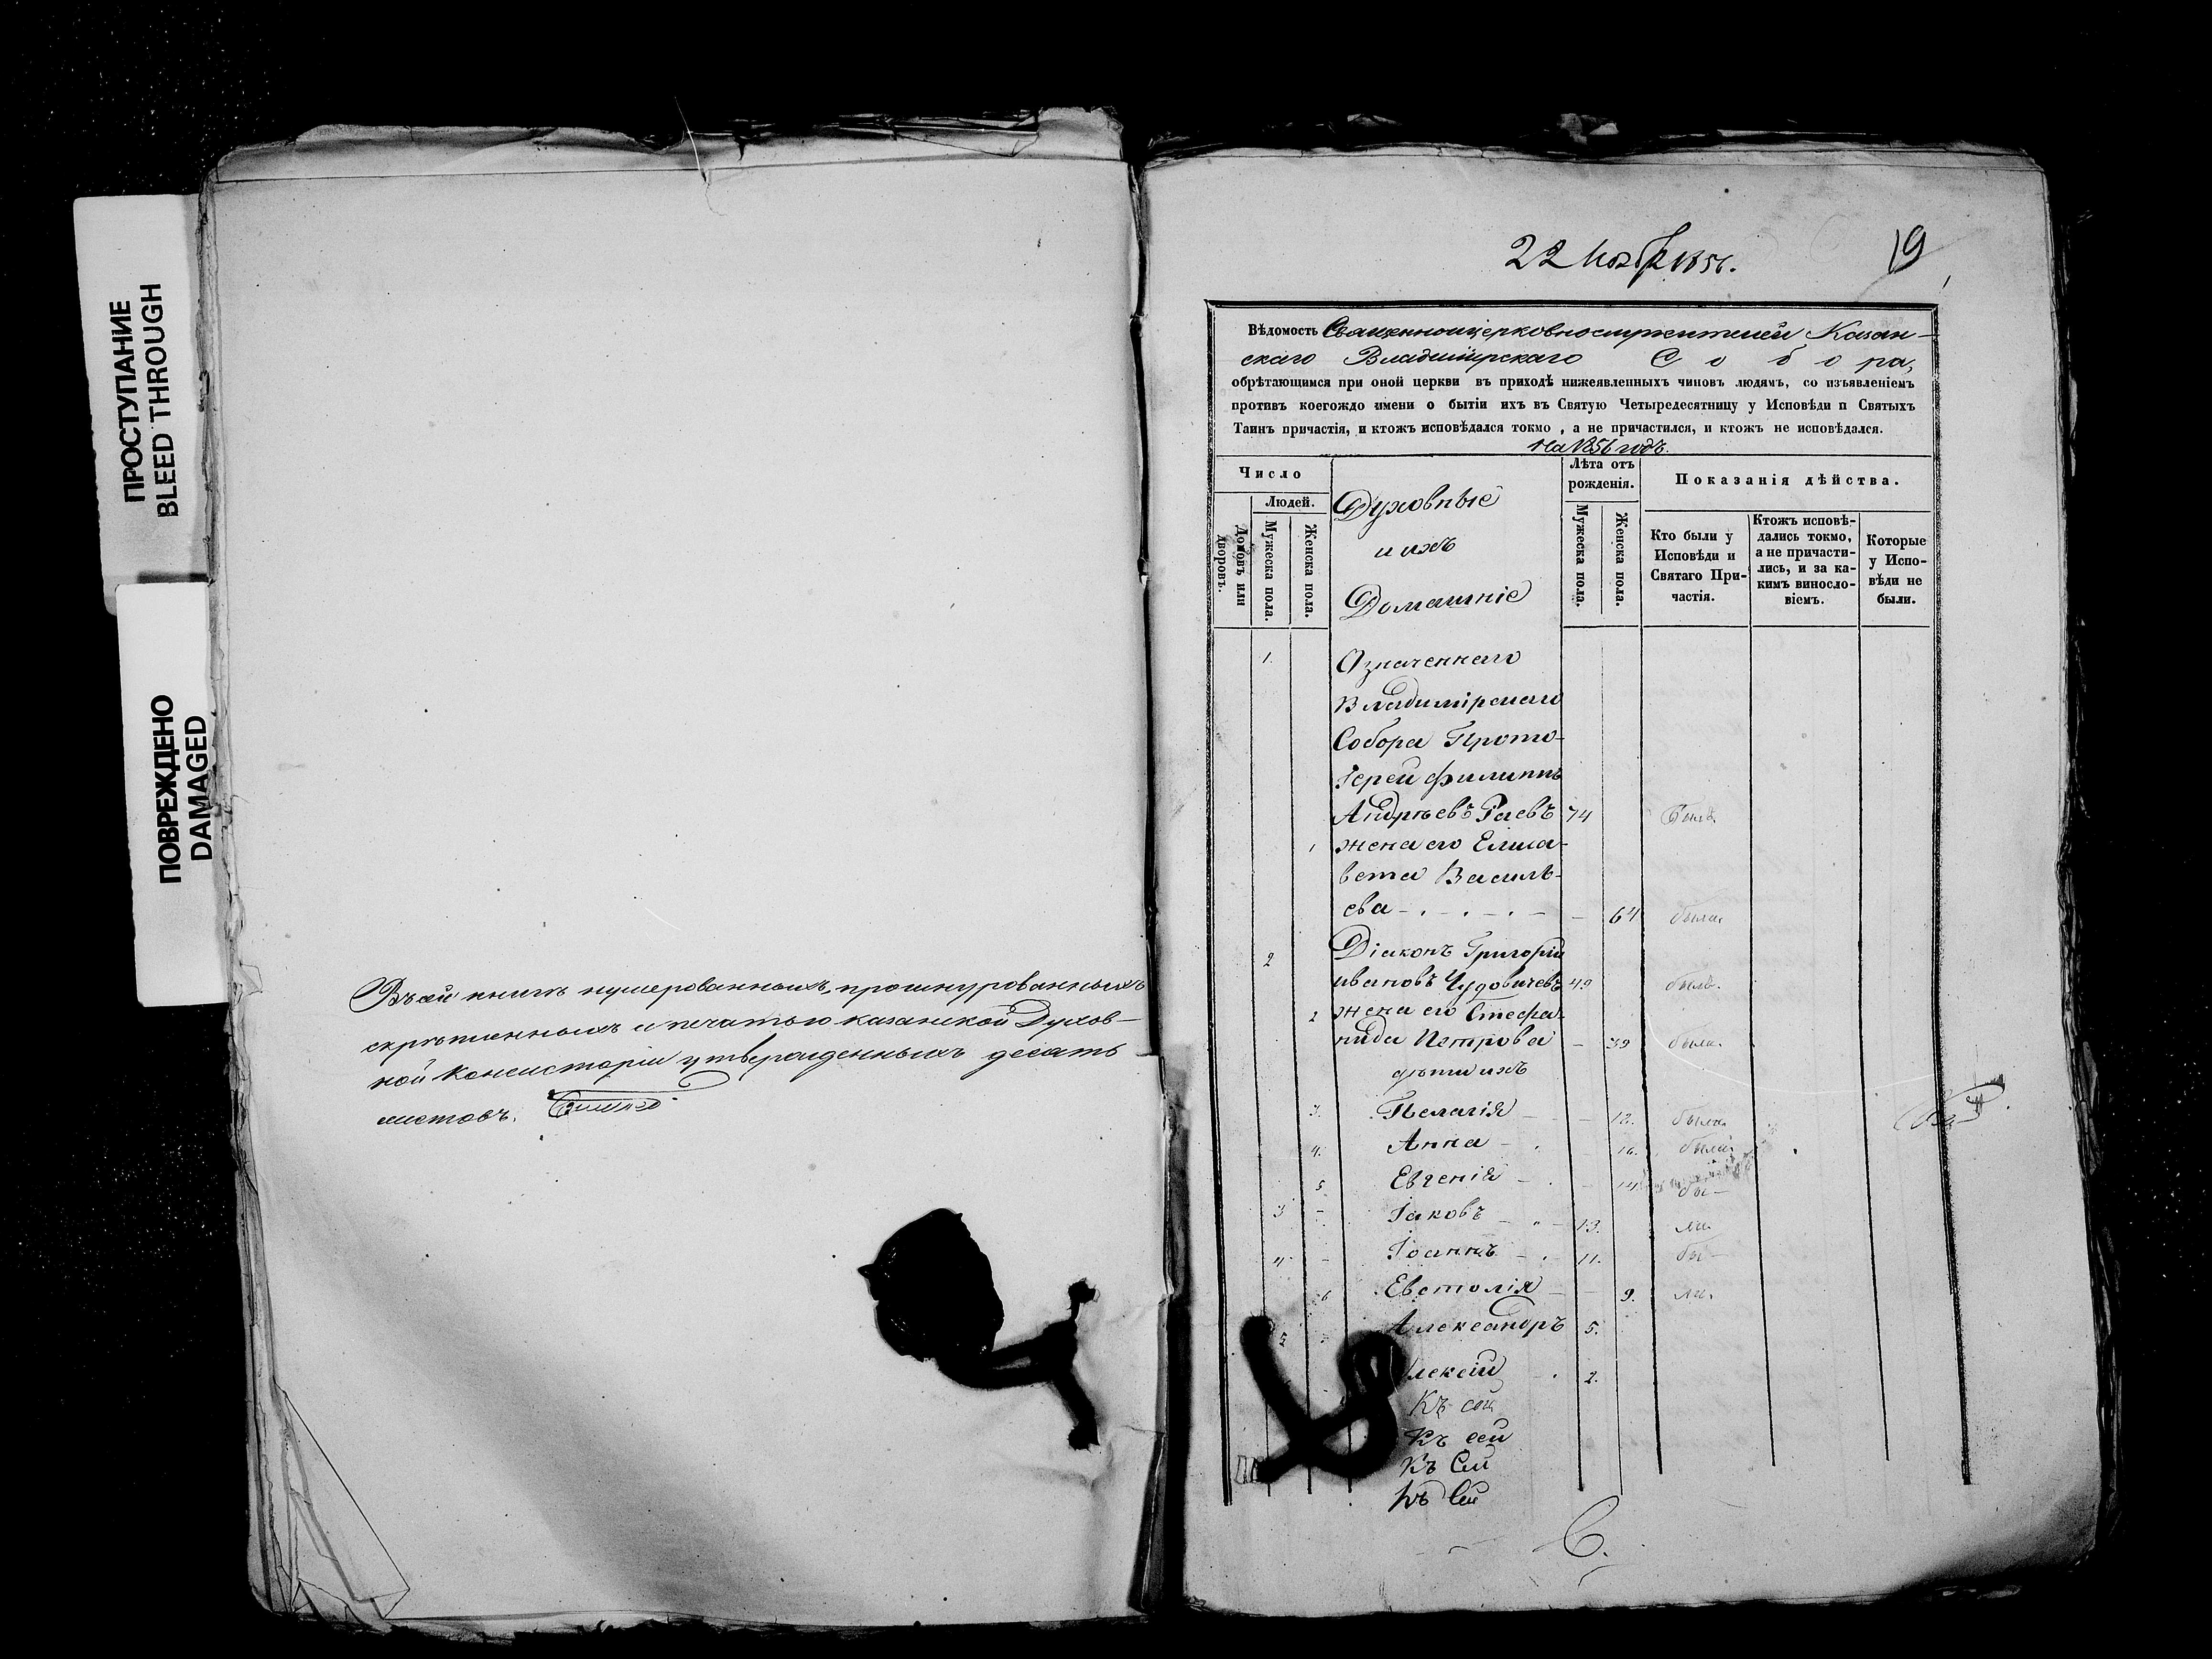 ПРОСТУПАНИЕ
BLEED THROUGH
ПОВРЕЖДЕНО
DAMAGED
Въ сей книгѣ нумерованныхъ, прошнурованныхъ
скрѣпленныхъ и печатью Казанской Духов-
ной Консисторіи утвержденныхъ десять
листовъ.
22 1856.
19
Вѣдомость Священноцерковнослужителей Казан-
скаго Владимірскаго Собора,
обрѣтающимся при оной церкви въ приходѣ нижеявленныхъ чиновъ людямъ, со изъявленіемъ
противъ коегождо имени о бытіи ихъ въ Святую Четыредесятницу у Исповѣди и Святыхъ
Таинъ причастія, и ктожъ исповѣдался токмо, а не причастился, и ктожъ не исповѣдался.
На 1856 годъ.
Число
Людей.
Домовъ или дворовъ.
Мужеска пола.
Женска пола.
Духовные
и ихъ
Домашніе
Лѣта отъ рожденія.
Мужеска пола.
Женска пола.
Показанія дѣйства.
Кто были у Исповѣди и Святаго Причастія.
Ктожъ исповѣ-
дались токмо,
а не причасти-
лись, и за ка-
кимъ винословіемъ.
Которые
у Испо-
вѣди не
были.
1. Означеннаго
Владимірскаго
Собора Прото-
Іерей Филиппъ
Андреевъ Раевъ 74 былъ
1 жена его Елиса-
вета Василь-
ева - 64 была
2 Діаконъ Григорій
Ивановъ Чудовичевъ 49 былъ.
2 жена его Стефа-
нида Петрова - 39 была.
дѣти ихъ
3. Пелагія - 18. была
4. Анна - 16. была
5 Евгенія - 14. бы-
3 - Іаковъ - 13. ли.
4 - Іоаннъ - 11. бы-
6 Евстолія - 9. ли.
5 Александръ 5.
лексій 2.
Къ сей
Къ сей
Къ Сей
Къ Сей